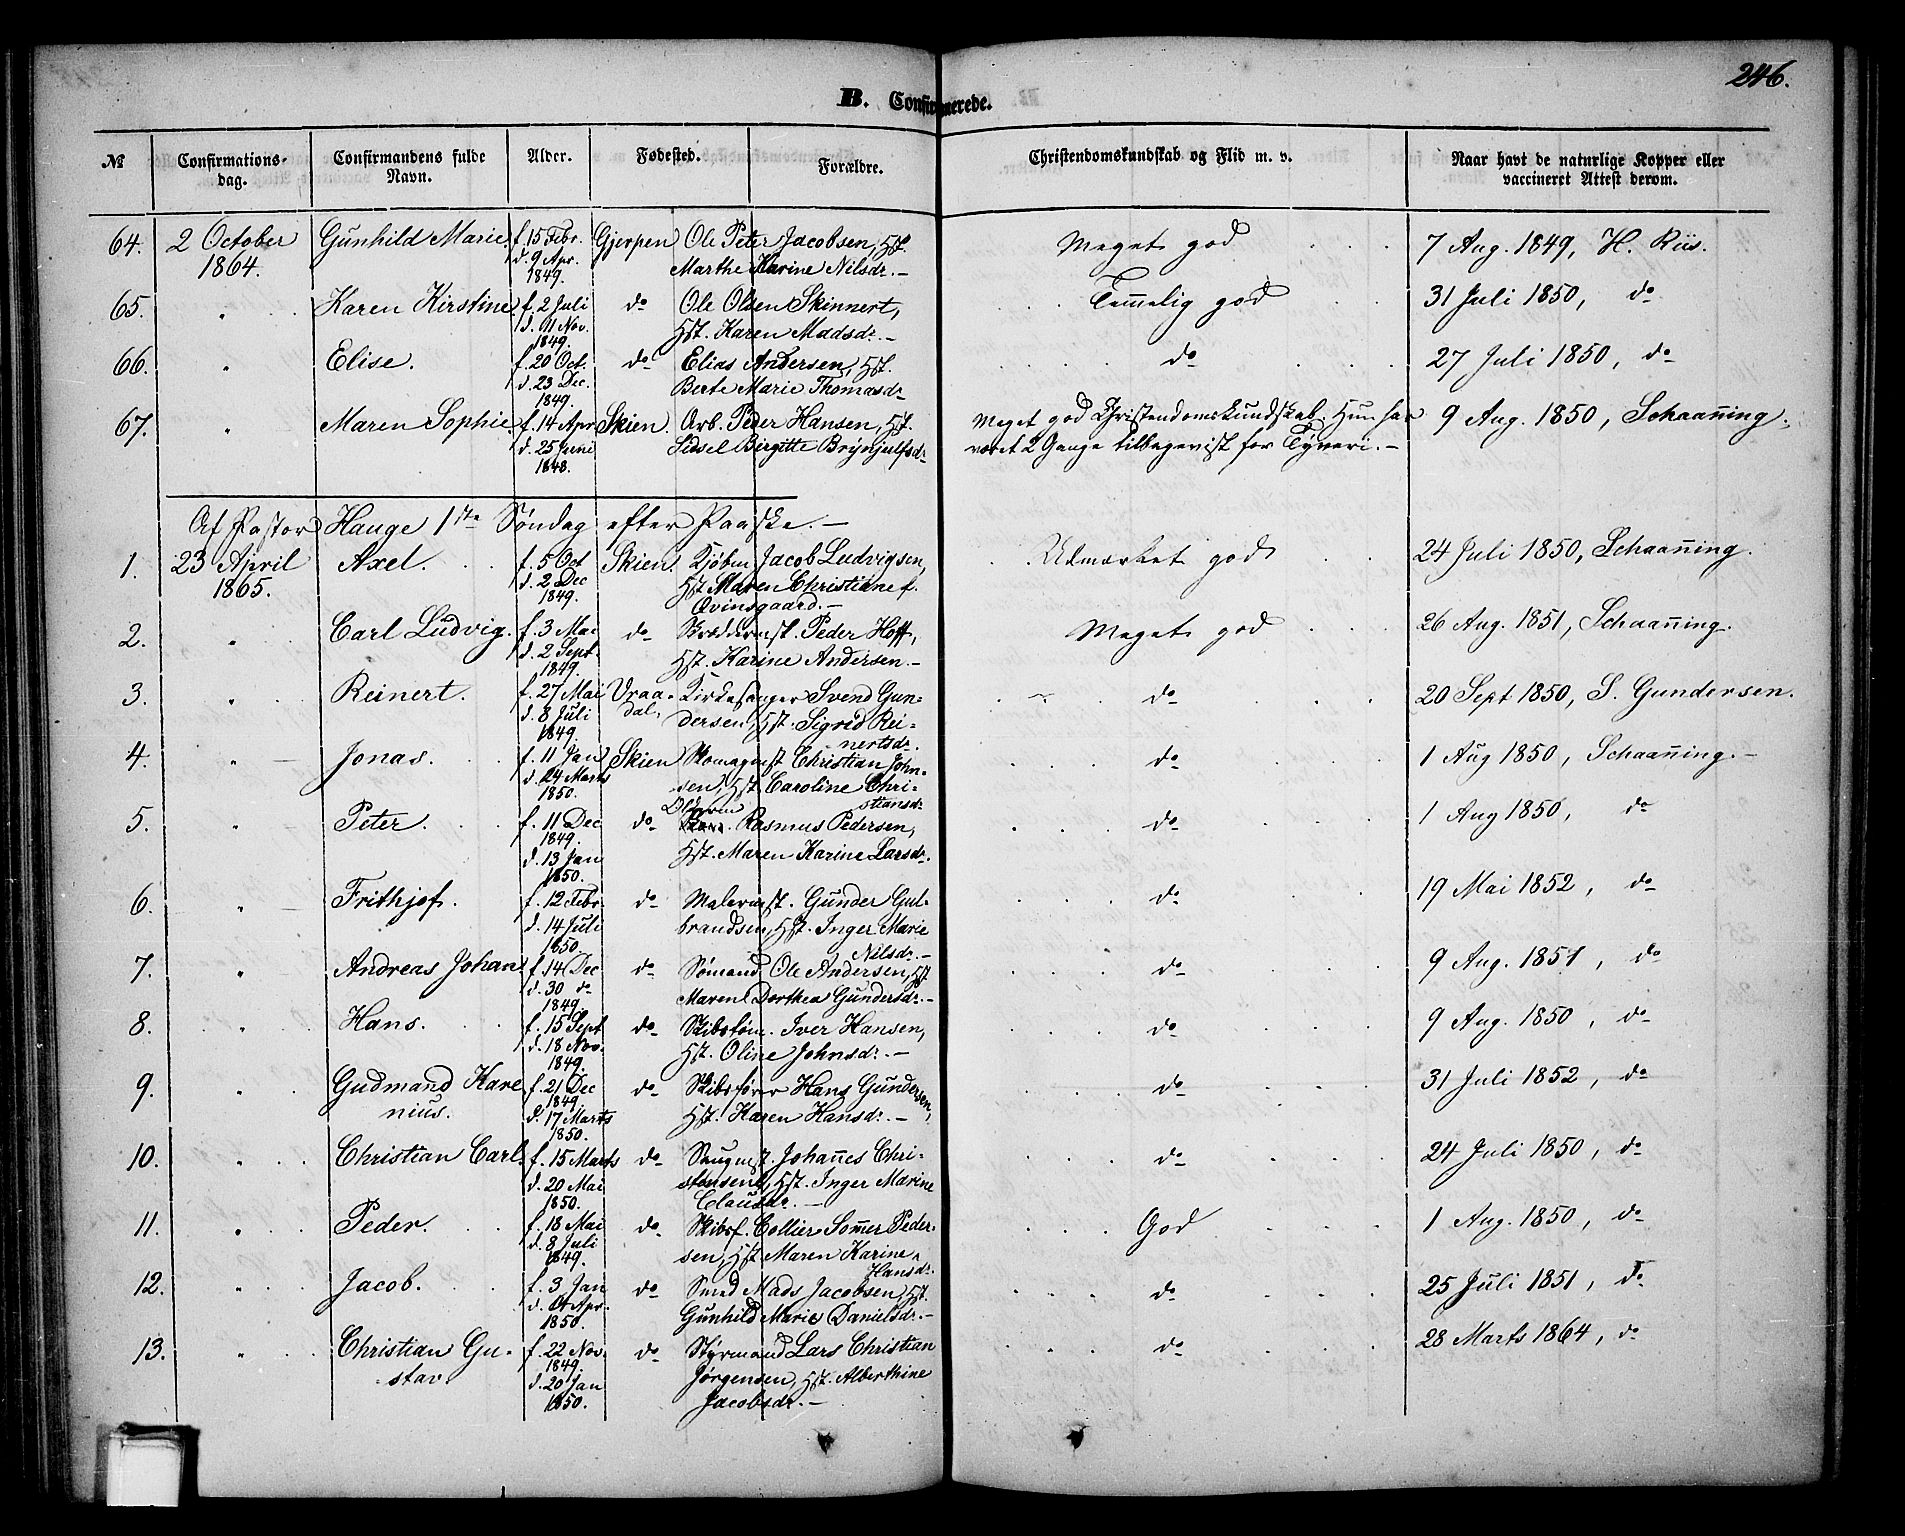 246.
B. Confirmerede.
№ Confirmations-dag. Confirmandens fulde Navn. Alder. Fødested. Forældre. Christendomskundskab og Flid m. v. Naar havt de naturlige Kopper eller vaccineret Attest derom.
64. 2 October Gunhild Marie. f. 15 Febr. Gjerpen Ole Peter Jacobsen, Hst. Meget god 7 Aug. 1849, H. Riis.
1864. d. 9 Apr. Marthe Karine Nilsdr. –
1849.
65. " Karen Kirstine f. 2 Juli do Ole Olsen Skinnert, Temmelig god 31 Juli 1850, do
d. 11 Nov. Hst. Karen Madsdr. –
1849.
66. " Elise. f. 20 Oct. do Elias Andersen, Hst. do 27 Juli 1850, do
d. 23 Dec. Berte Marie Thomasdr
1849.
67. " Maren Sophie f. 14 Apr Skien. Arb. Peder Hansen, Hst. Meget god Christendomskundskab. Hun har 9 Aug. 1850, Schaanning.
d. 25 Juni Sidsel Birgitte Brynjulfsdr været 2 Gange tilbagevist for Tyveri. –
1848.
Af Pastor Hauge 1ste Søndag efter Paaske. –
1. 23 April Axel. f. 5 Oct Skien. Kjøbm. Jacob Ludvigsen, Udmærket god 24 Juli 1850, Schaanning.
1865. d. 2 Dec Hst. Maren Christiane f.
1849. Qvinsgaard. –
2. " Carl Ludvig. f. 3 Mai do Skrædermst. Peder Hoff, Meget god 26 Aug. 1851, Schaanning.
d. 2 Sept. Hst. Karine Andersen. –
1849.
3. " Reinert. f. 27 Mai Vraa- Kirkesanger Svend Gun- do 20 Sept 1850, S. Gundersen.
d. 8 Juli dal. dersen, Hst. Sigrid Rei-
1849. nertsdr.
4. " Jonas. f. 11 Jan Skien Skomagmst Christian John- do 1 Aug 1850, Schaanning. –
d. 24 Marts sen, Hst. Caroline Chri-
1850. stiansdr
5. " Peter. f. 11 Dec do Rasmus Pedersen, do 1 Aug 1850, do
1849. Hst. Maren Karine Larsdr.
d. 13 Jan
1850.
6. " Frithjof. f. 12 Febr do Malermst. Gunder Gul- do 19 Mai 1852, do
d. 14 Juli brandsen, Hst. Inger Marie
1850. Nilsdr. –
7. " Andreas Johan f. 14 Dec do Sømand Ole Andersen, Hst do 9 Aug. 1851, do
d. 30 do Maren Dorthea Gundersdr. –
1849.
8. " Hans. f. 15 Sept do Skibstøm. Iver Hansen, do 9 Aug. 1850, do
d. 18 Nov. Hst. Oline Johnsdr. –
1849.
9. " Gudmand Kare f. 21 Dec do Skibsfører Hans Gundersen, do 31 Juli 1852, do
nius. 1849. Hst. Karen Hansdr. –
d. 17 Marts
1850.
10. " Christian Carl. f. 15 Marts do Johannes Chri- do 24 Juli 1850, do
d. 20 Mai stensen, Hst. Inger Marine
1850. Clausdr. –
11. " Peder. f. 18 Mai do Skibsf. Collier Somer Peder- God 1 Aug. 1850, do
d. 8 Juli sen, Hst Maren Karine
1849. Hansdr.
12. " Jacob. f. 3 Jan do Smed Mads Jacobsen, Hst. do 25 Juli 1851, do
d. 14 Apr. Gunhild Marie Danielsdr. –
1850.
13. " Christian Gu- f. 22 Nov. do Styrmand Lars Christian do 28 Marts 1864, do
stav. 1849. Jørgensen, Hst. Alberthine
d. 20 Jan Jacobsdr. –
1850.